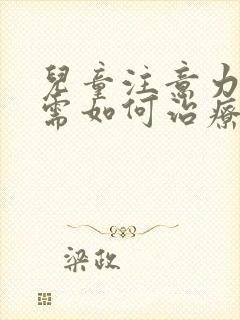 兒童注意力
需如何治療
梁政